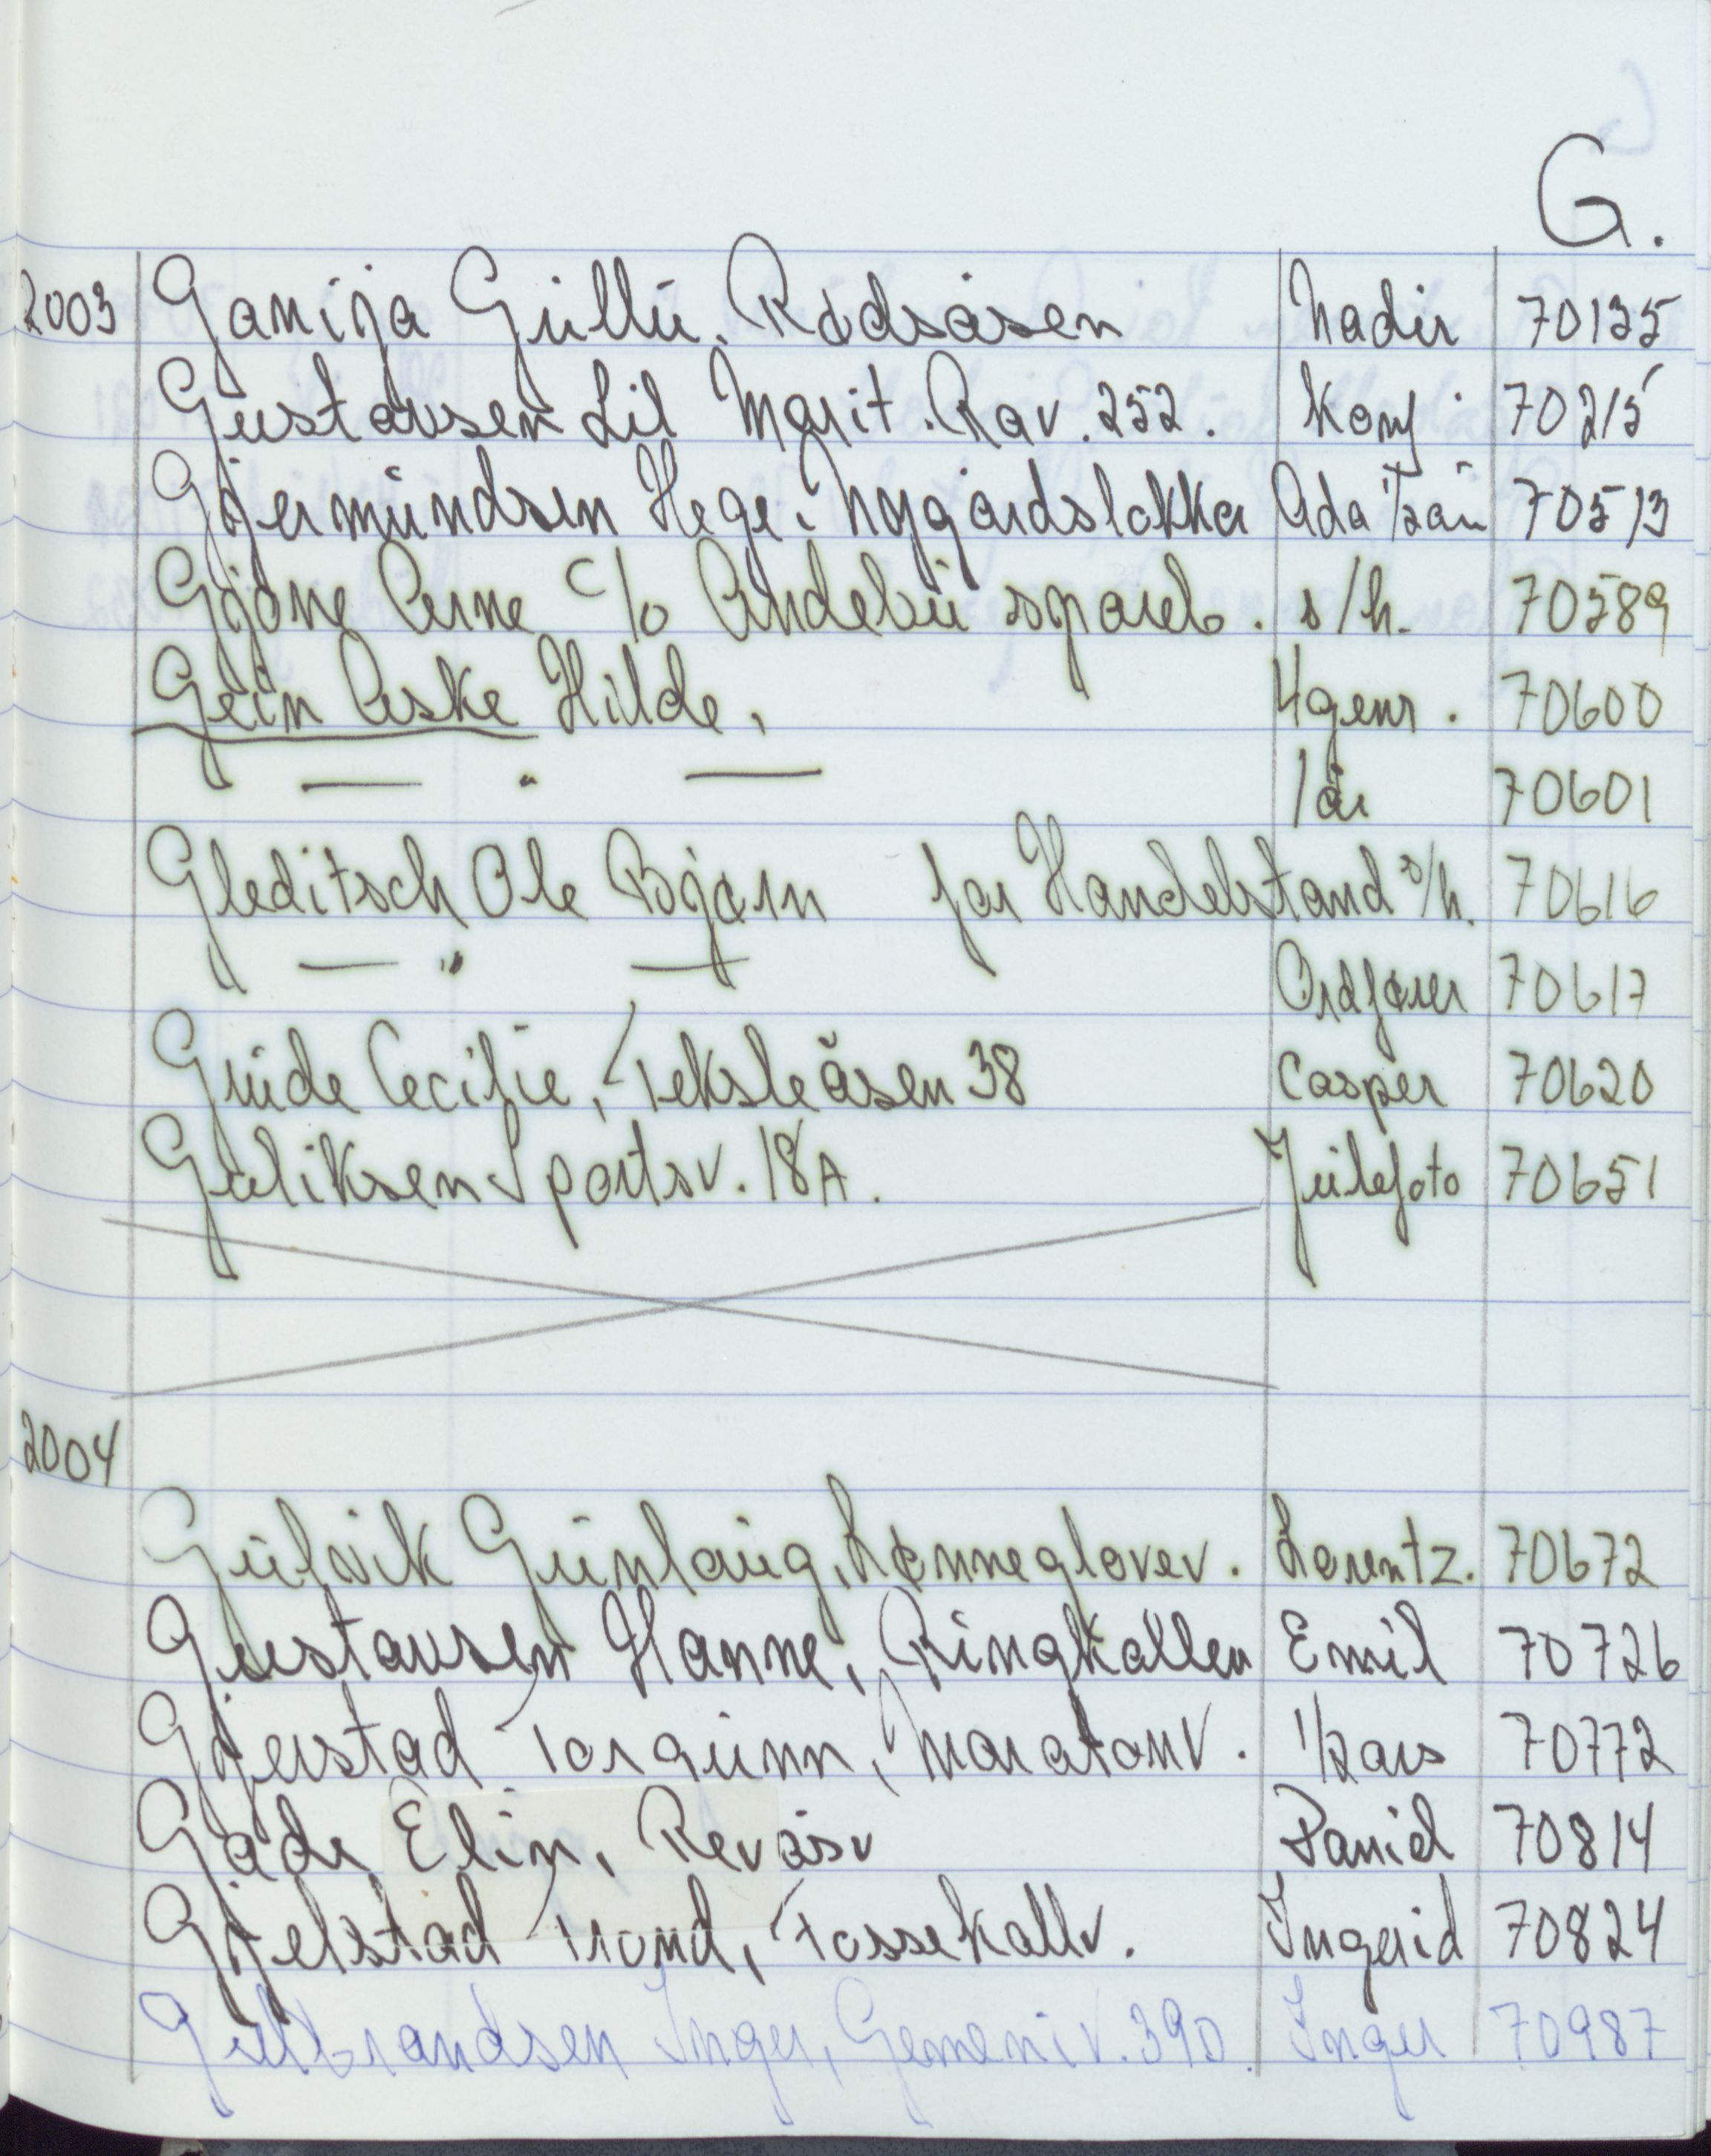 G.
2003 Ganija Güllü. Rødsåsen Nadir 70135
Gustavsen Lil Marit. Rav. 252. Konf 70215
Gjermundsen Hege. Nygårdsløkka Ada 1/2 år 70513
Gjone Arne c/o Andebu spareb. s/h. 70589
Grün Aske Hilde, 4gener. 70600
— " — 1 år 70601
Gleditsch Ole Bjørn for Handelstand s/h. 70616
— " — Ordfører 70617
Gude Cecilie, Teksleåsen 38 Casper 70620
Guliksen Sportsv. 18A. Julefoto 70651
2004
Gulsvik Gunlaug, Rønnegloverv. Lorentz. 70672
Gustavsen Hanne, Ringkollen Emil 70726
Gjerstad Torgunn, Maratonv. 1/2 års 70772
Gade Elin, Revåsv David 70814
Gjelstad Trond, Fossekallv. Ingerid 70824
Gulbrandsen Inger, Gemeniv. 39D. Inger 70987